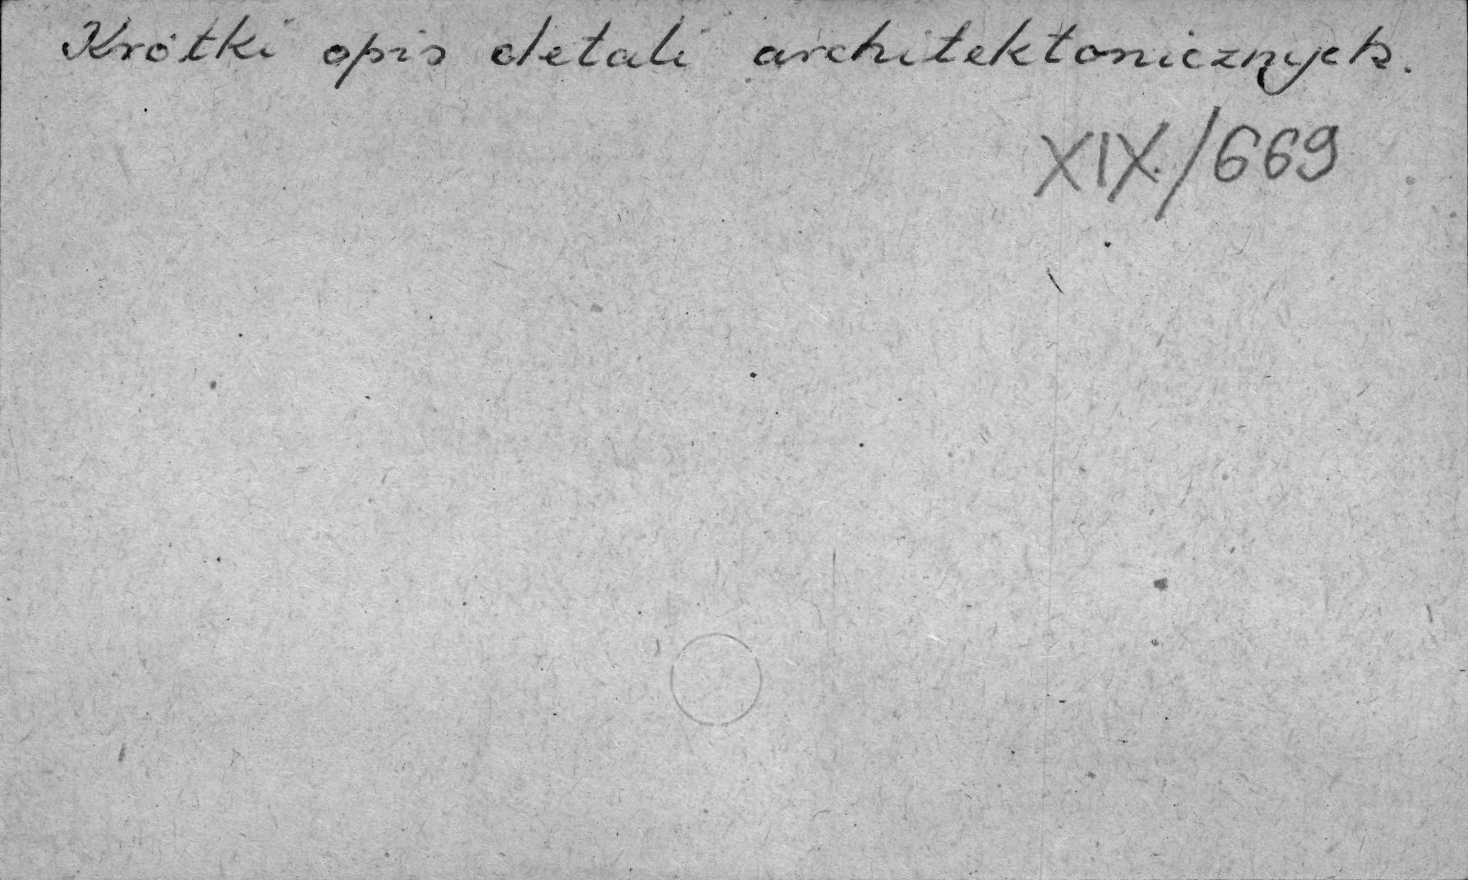 Krótki opis detali architektonicznych.
XIX/669